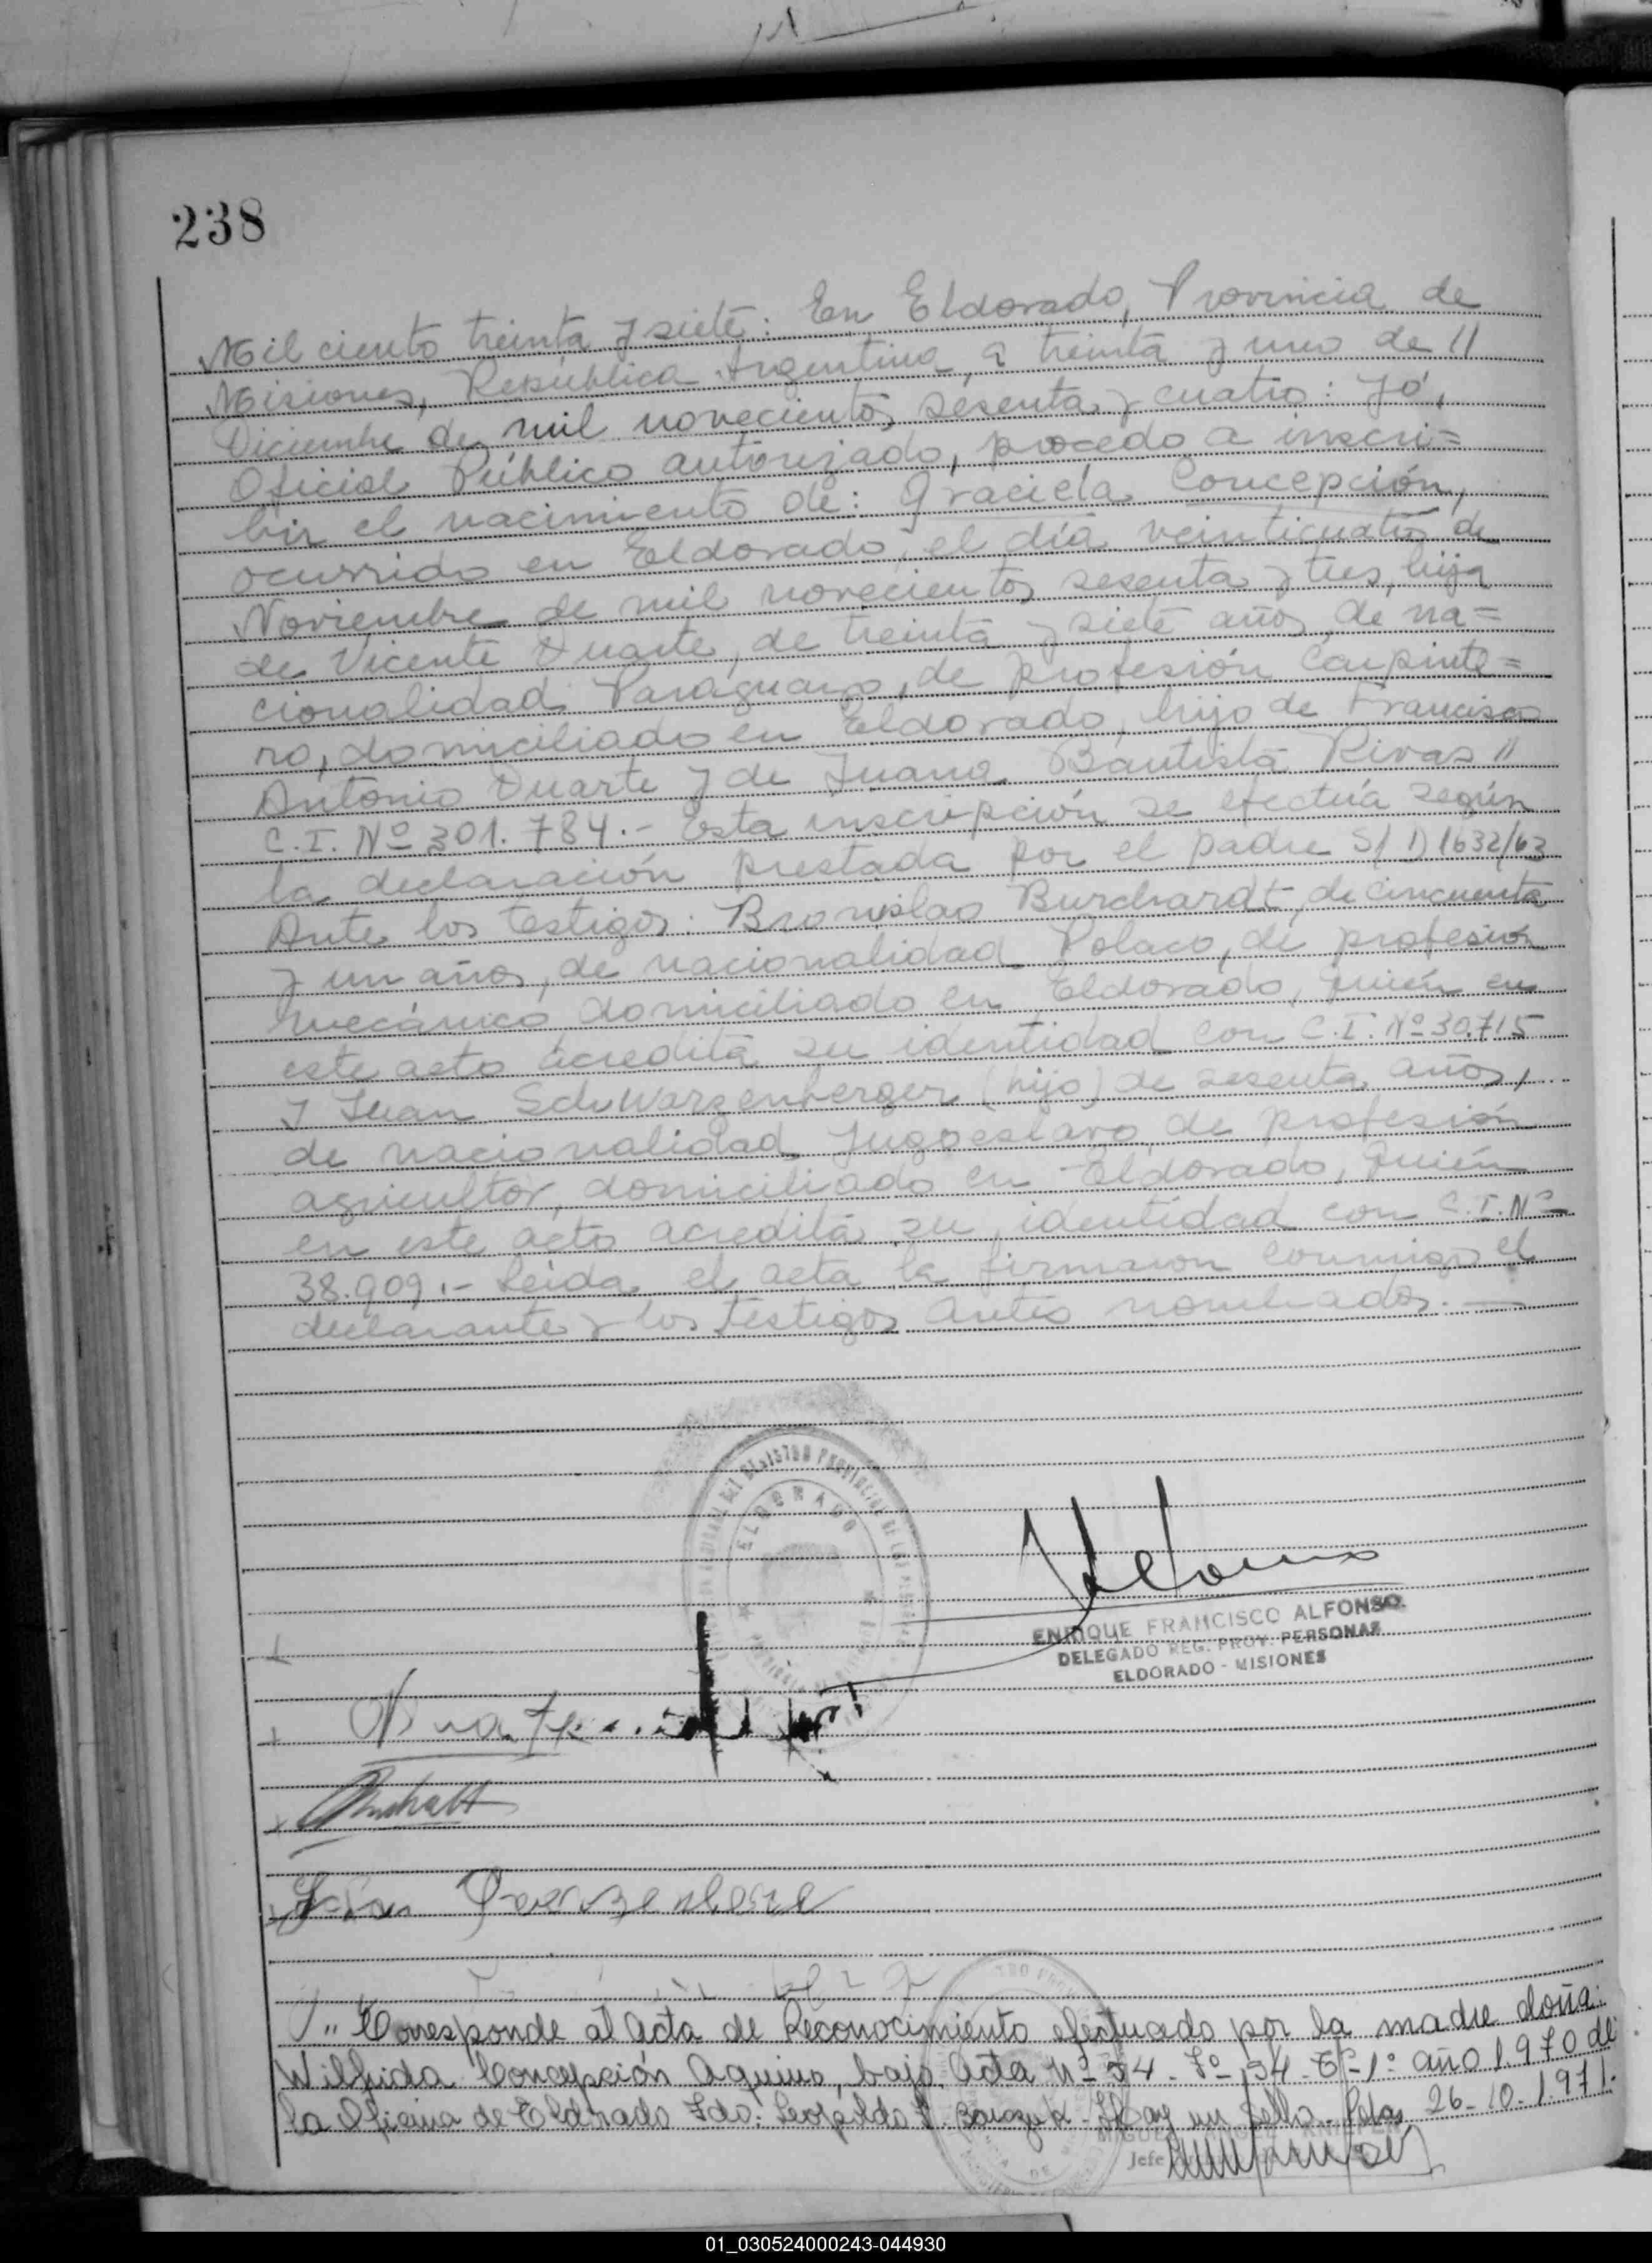 238
Mil ciento treinta y siete: En Eldorado, Provincia de
Misiones, República Argentina, a treinta y uno de //
Diciembre de mil novecientos sesenta y cuatro: Yó,
Oficial Público autorizado, procedo a inscri=
bir el nacimiento de: Graciela Concepción,
ocurrido en Eldorado, el día veinticuatro de
Noviembre de mil novecientos sesenta y tres, hija
de Vicente Duarte, de treinta y siete años, de na=
cionalidad Paraguayo, de profesión Carpinte=
ro, domiciliado en Eldorado, hijo de Francisco
Antonio Duarte y de Juana Bautista Rivas //
C.I. Nº 301.784.- Esta inscripción se efectúa según
la declaración prestada por el padre S/ D 1632/63
Ante los testigos: Bronislao Burchardt, de cincuenta
y un años, de nacionalidad Polaco, de profesión
mecánico domiciliado en Eldorado, quién en
este acto acredita su identidad con C.I. Nº 30.715
y Juan Schwarzenberger (hijo) de sesenta años,
de nacionalidad Jugoeslavo, de profesión
agricultor, domiciliado en Eldorado, quién
en este acto acredita su identidad con C.I. Nº
38.909.- Leida el acta la firmaron conmigo el
declarante y los testigos antes nombrados.-
ELDORADO
ENRIQUE FRANCISCO ALFONSO
DELEGADO REG. PROV. PERSONAS
ELDORADO - MISIONES
//" Corresponde al Acta de Reconocimiento efectuado por la madre doña:
Wilfrida Concepción Aquino, bajo Acta Nº 54 - Fº 54 - Tº 1º año 1.970 de
la Oficina de Eldorado Fdo: Leopoldo - Hay un sello. Pdas, 26-10-1.971.
Jefe
01_030524000243-044930